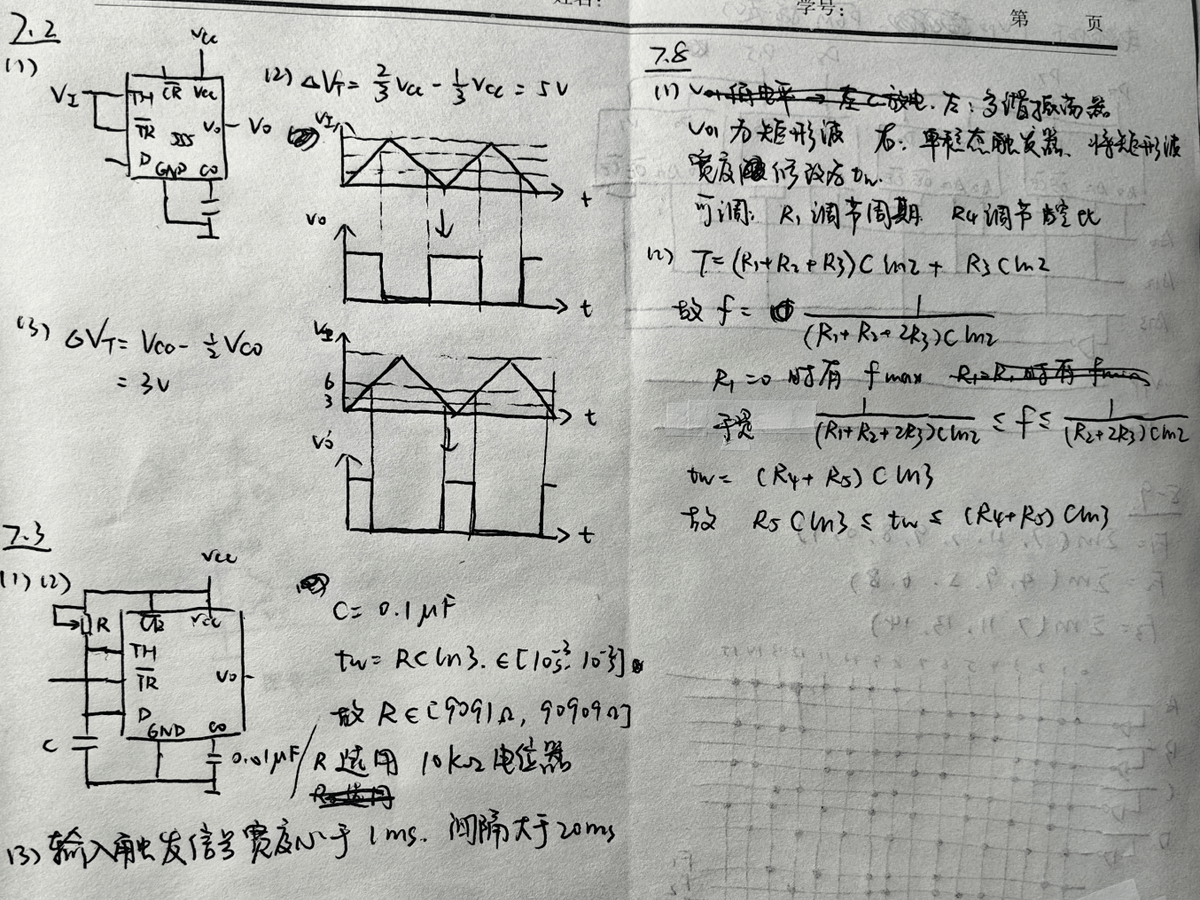 姓名: 学号: 第 页
7.2
(1)
Vcc
VI
TH C̅R̅ Vcc
T̅R̅ 555 Vo Vo
D
GND CO
(2) ΔVT = 2/3 Vcc - 1/3 Vcc = 5V
VI
t
Vo
t
(3) ΔVT = VCO - 1/2 VCO
= 3V
VI
6
3
t
Vo'
t
7.3
(1)(2)
Vcc
R C̅R̅ Vcc
TH
T̅R̅ Vo
D
GND CO
C 0.01μF
C = 0.1μF
tw = RC ln3. ∈
故 R ∈ [9091Ω, 90909Ω]
R 选用 10kΩ 电位器
(3) 输入触发信号宽度小于 1ms. 间隔大于20ms
7.8
(1) 左: 多谐振荡器
Vo1 为矩形波 右: 单稳态触发器. 将矩形波
宽度修改为 tw.
可调: R1 调节周期 R4 调节占空比
(2) T = (R1+R2+R3)C ln2 + R3 C ln2
故 f = 1/((R1+R2+2R3)C ln2)
R1=0 时有 fmax
于是 1/((R1+R2+2R3)C ln2) ≤ f ≤ 1/((R2+2R3)C ln2)
tw = (R4+R5) C ln3
故 R5 C ln3 ≤ tw ≤ (R4+R5) C ln3